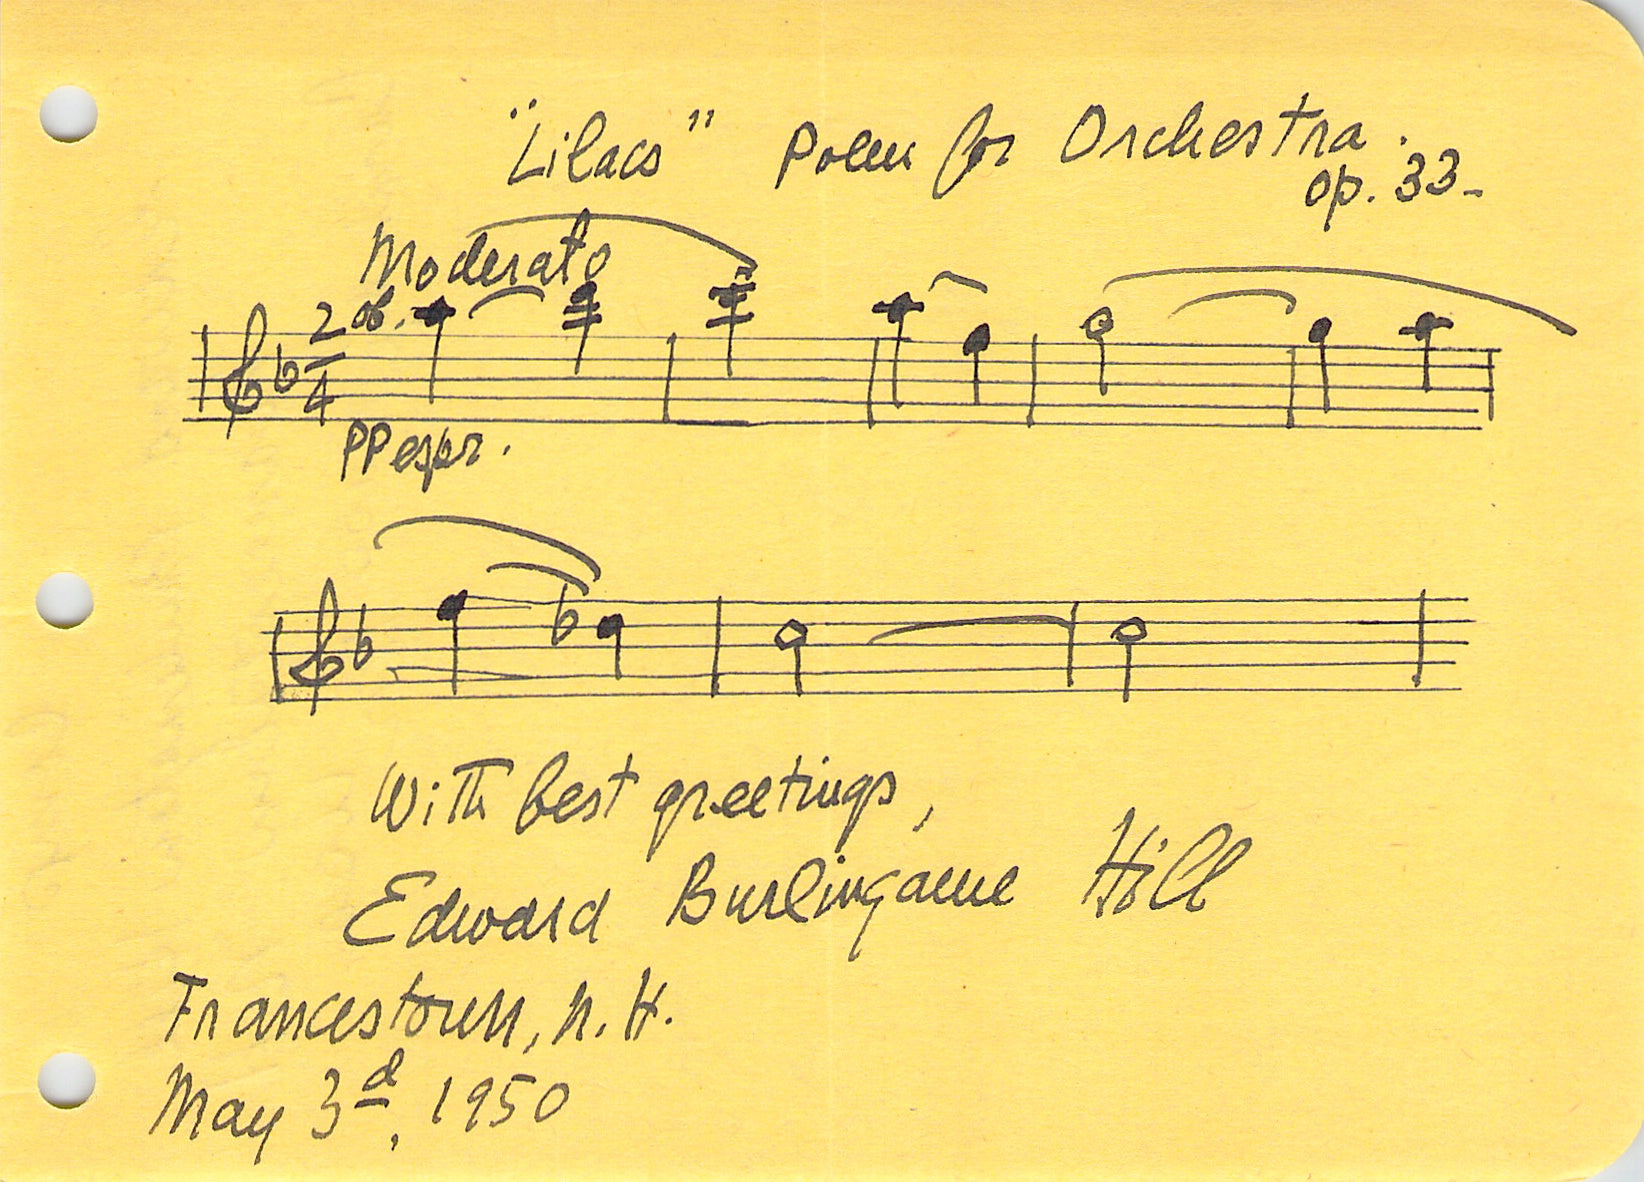 "Lilacs" Poem for Orchestra.
op. 33-
Moderato
ob.
2
4
PP espr.
With best greetings,
Edward Burlingame Hill
Francestown, N. H.
May 3d, 1950